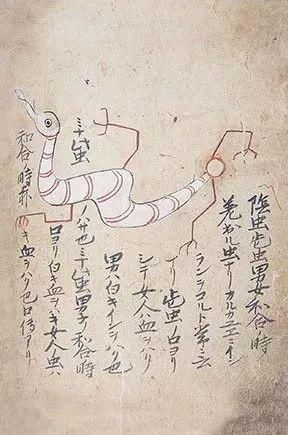 陰虫此虫男女和合時
巻カル虫ナリカルカユエニイン
ランヲコルト常ニ
ナリ此虫ノロヨリ
シテ女人ハ血ヲハク
男ハ白キインヲハク也
虫男子ノ和合時
口ヨリ白キ血ヲハキ女人虫ハ
和合ノ時赤キ血ヲハク也口傳アリ